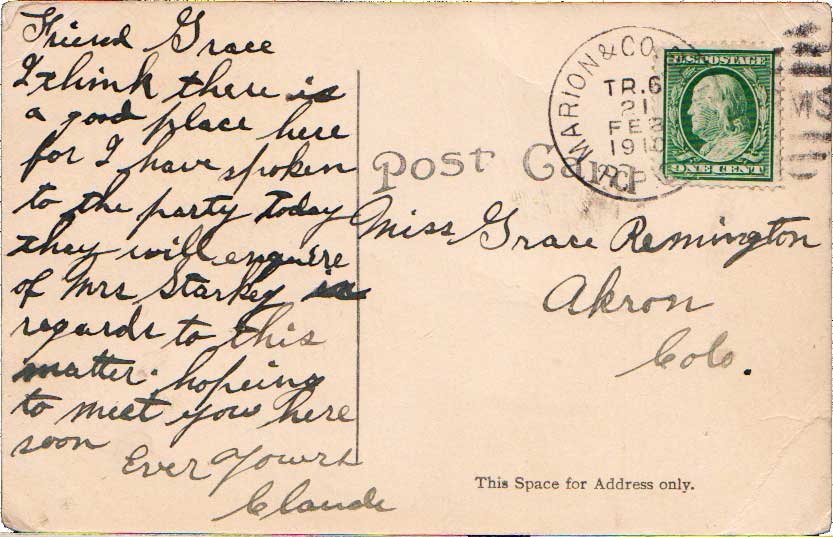 Friend Grace
I think there is
a good place here
for I have spoken
to the party today
they will enquire
of Mrs Starkey in
regards to this
matter. hopeing
to meet you here
soon
Ever Yours
Claude
Post Card
Miss Grace Remington
Akron
Colo.
This Space for Address only.
MARION & CO
TR. 6
21
FEB
1910
R.P.O
U.S. POSTAGE
ONE CENT